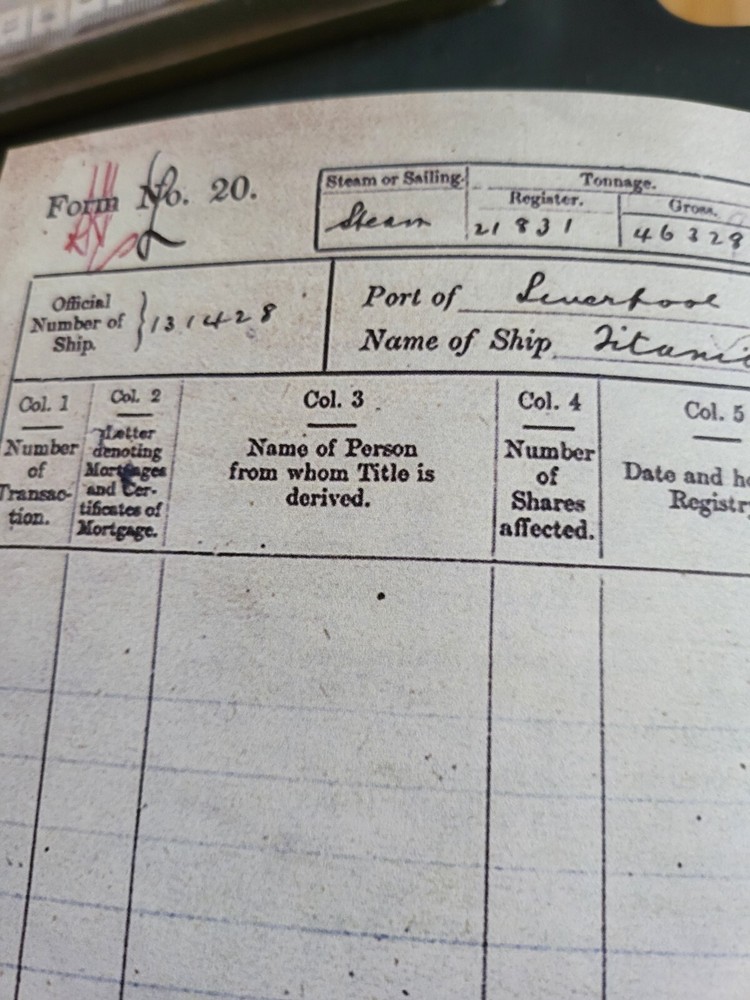 Form No. 20.
Steam or Sailing.
Steam
Tonnage.
Register.
21831
Gross.
46328
Official
Number of
Ship.
131428
Port of Liverpool
Name of Ship Titanic
Col. 1
Number
of
Transac-
tion.
Col. 2
Letter
denoting
Mortgages
and Cer-
tificates of
Mortgage.
Col. 3
Name of Person
from whom Title is
derived.
Col. 4
Number
of
Shares
affected.
Col. 5
Date and ho
Registry